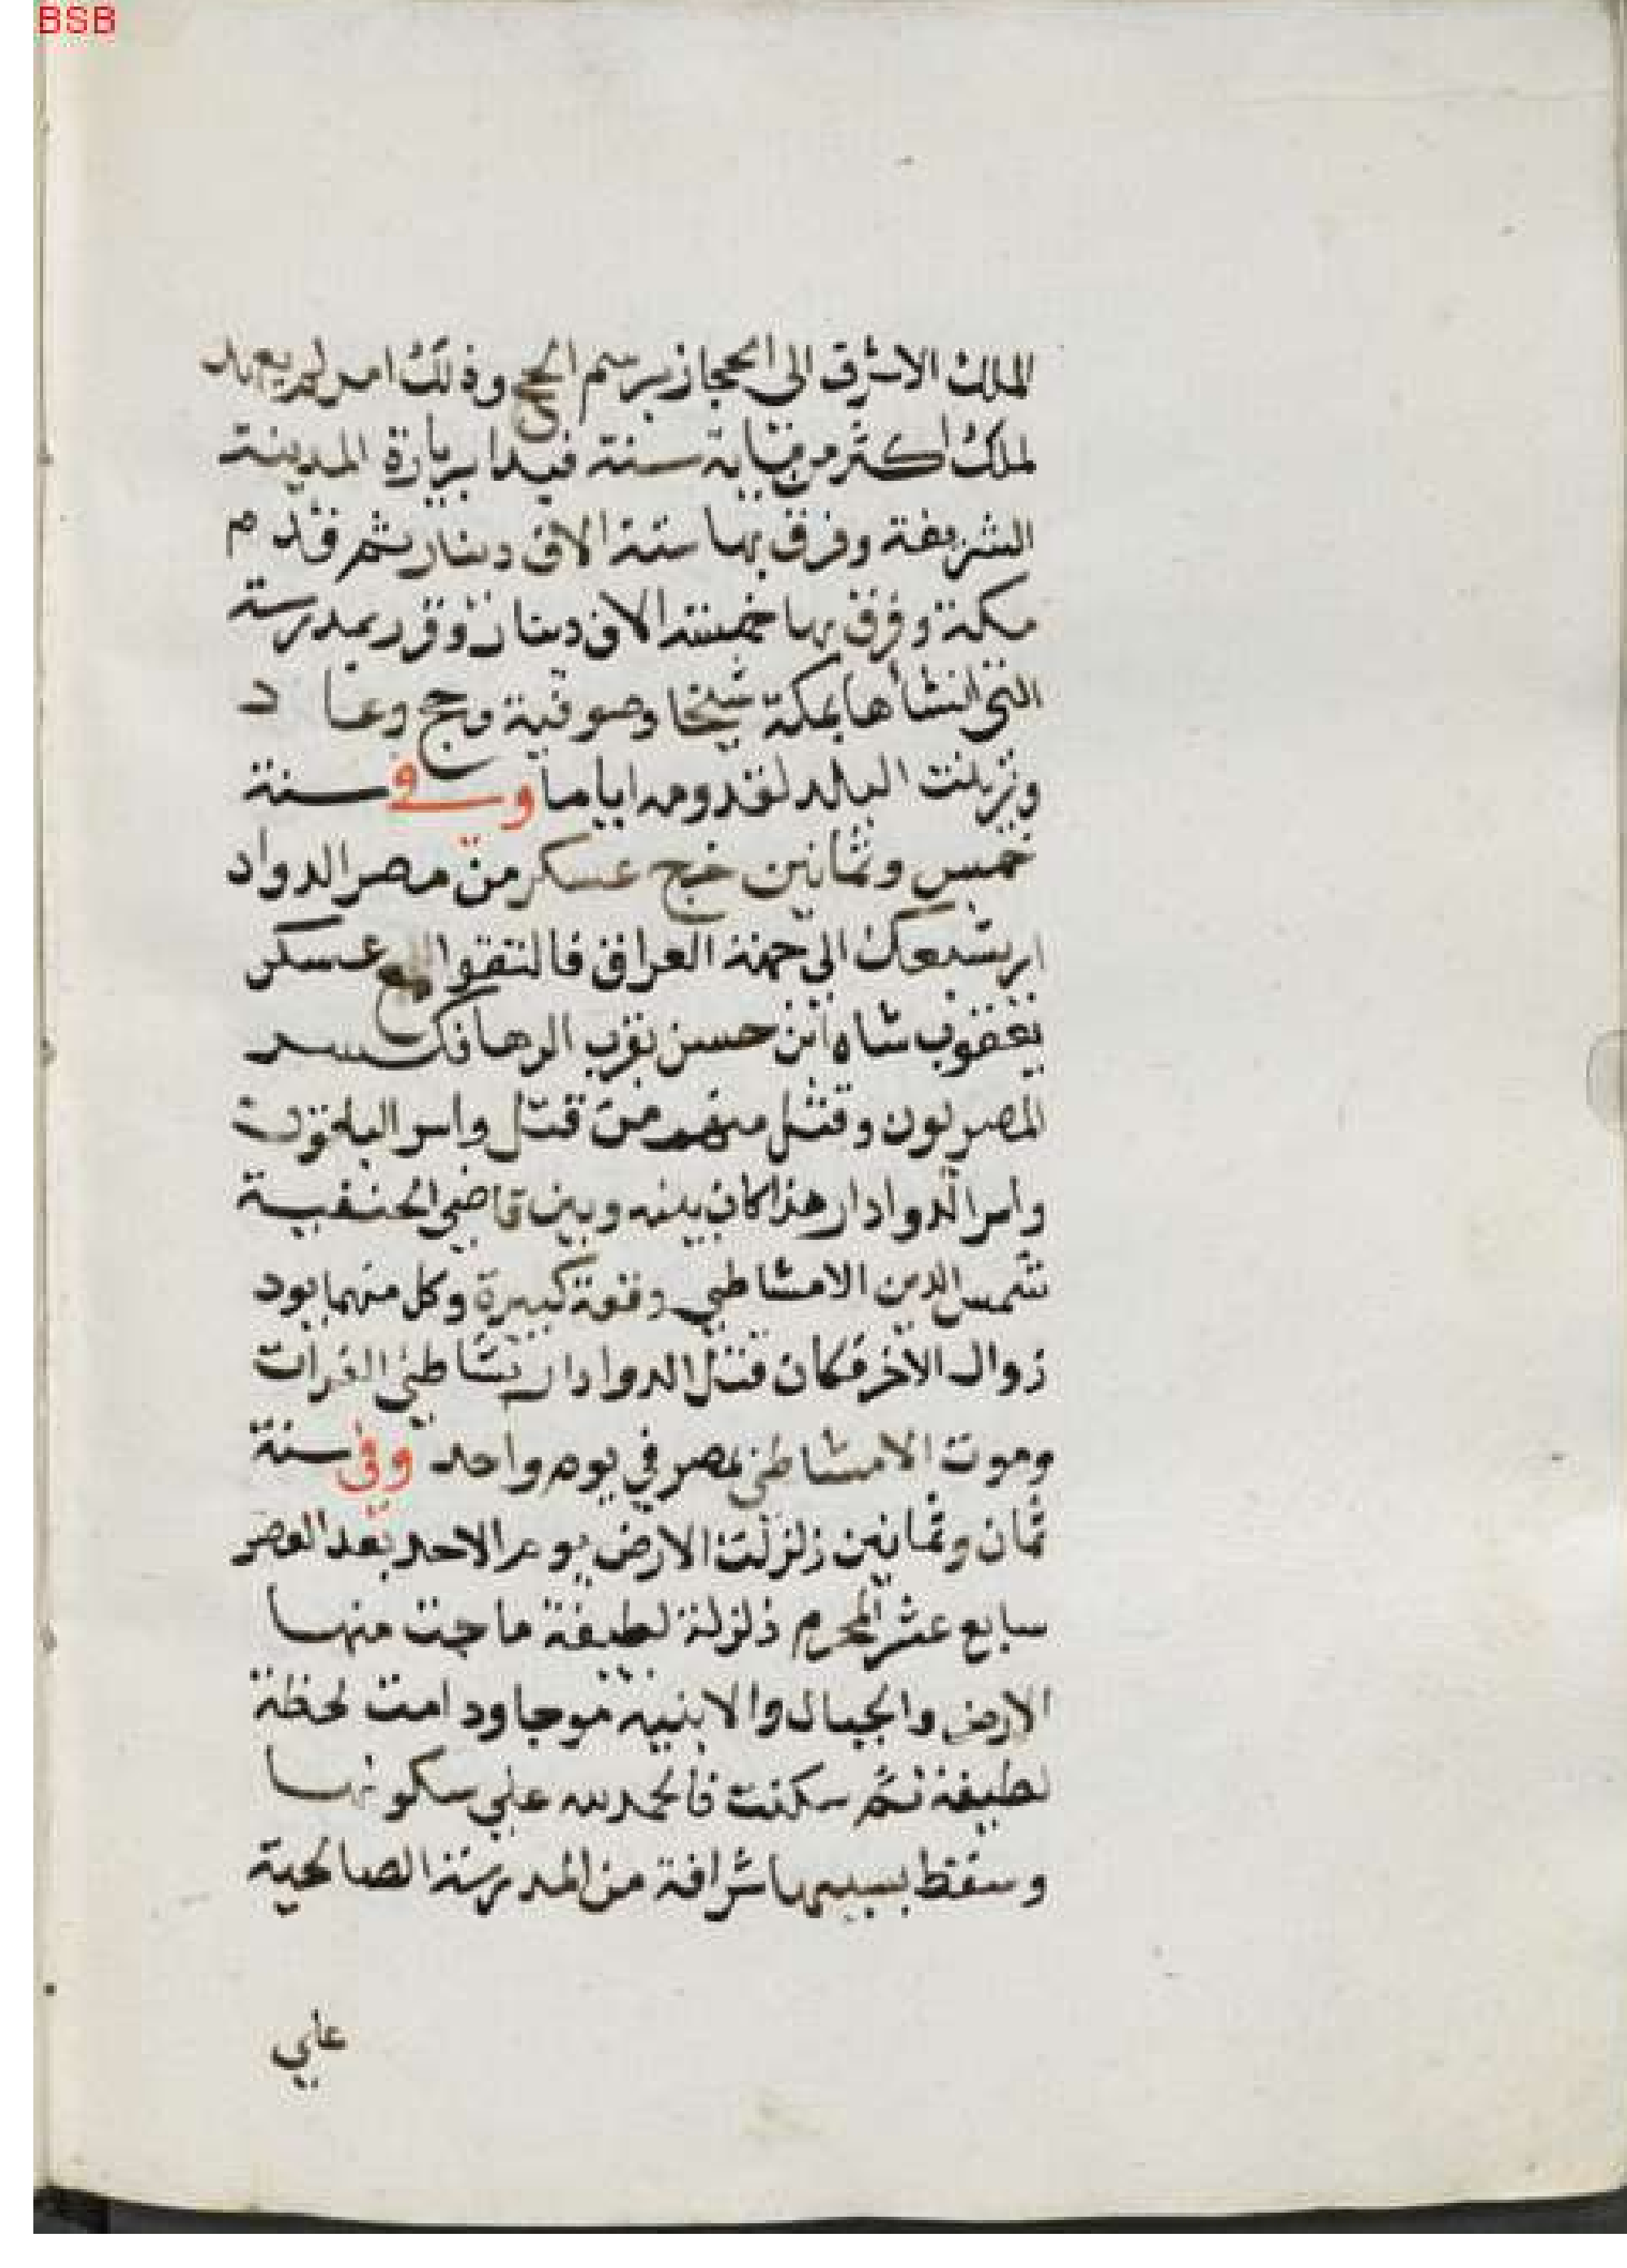 BSB
الملك الاشرف الى الحجاز برسم الحج وذلك امر لم يعهد
لملك أكثر من مائة سنة فبدا بزيارة المدينة
الشريفة وفرق بها ستة الاف دينار ثم قدم
مكة وفرق بها خمسة الاف دينار وقرر بمدرسته
التي انشأها بمكة شيخا وصوفية وحج وعاد
وزينت البلد لقدومه اياما وفي سنة
خمس وثمانين خرج عسكر من مصر الدواد
ار يشبك الى جهة العراق فالتقوا مع عسكر
يعقوب شاه ابن حسن بقرب الرها فكسر
المصريون وقتل منهم من قتل واسر الباقون
واسر الدوادار هذا كان بينه وبين قاضي الحنفية
شمس الدين الامشاطي وقعة كبيرة وكل منهما يود
زوال الاخر فكان قتل الدوادار بشاطئ الفرات
وموت الامشاطي بمصر في يوم واحد وفي سنة
ثمان وثمانين زلزلت الارض يوم الاحد بعد العصر
سابع عشر المحرم زلزلة لطيفة ماجت منها
الارض والجبال والابنية موجا ودامت لحظة
لطيفة ثم سكنت فالحمد لله علي سكونها
وسقط بسببها شرافة من المدرسة الصالحية
علي